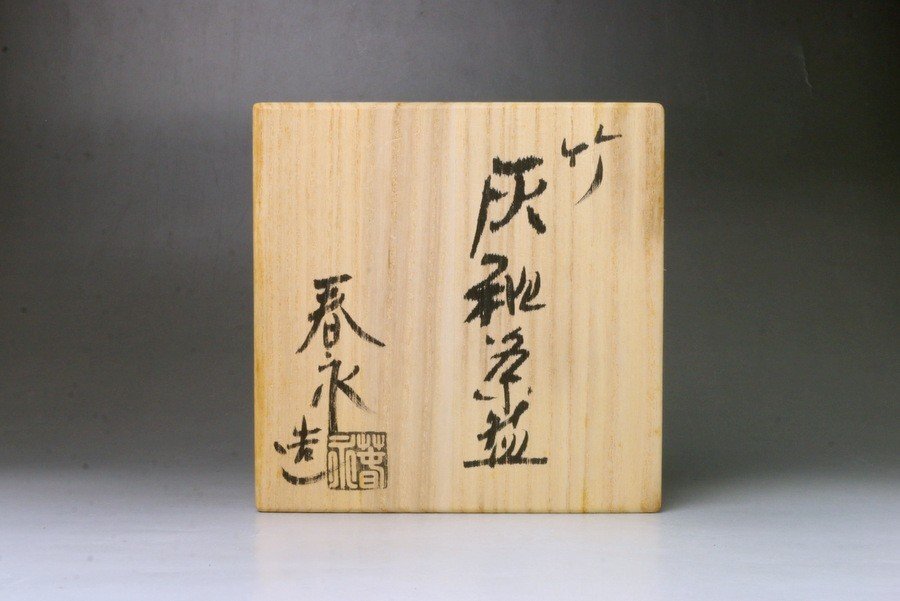 竹
灰釉茶盌
春永造
春永